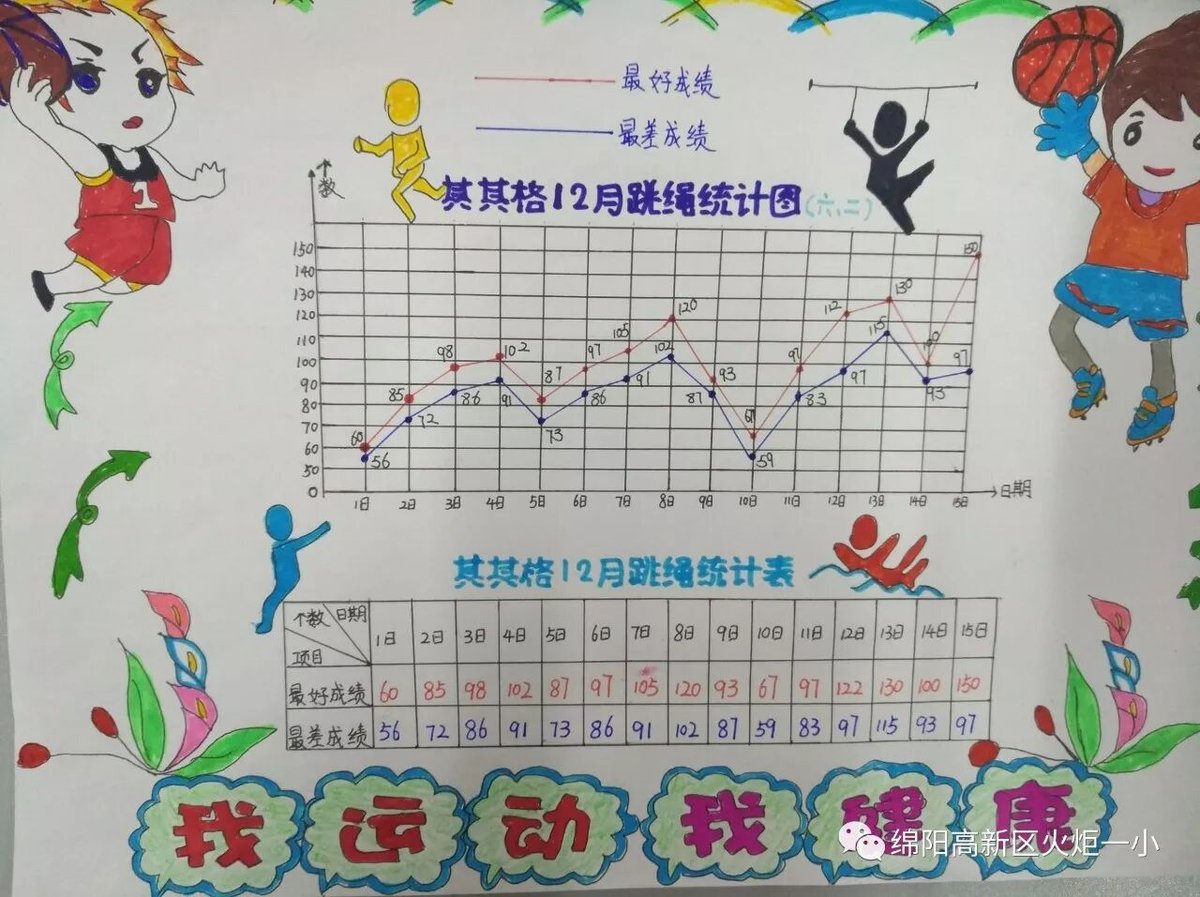 最好成绩
最差成绩
个数
其其格12月跳绳统计图(六、二)
150
140
130
120
110
100
90
80
70
60
50
0
60 85 98 102 87 97 105 120 93 67 97 112 130 100 150
56 72 86 91 73 86 91 102 87 59 83 97 115 93 97
1日 2日 3日 4日 5日 6日 7日 8日 9日 10日 11日 12日 13日 14日 15日
日期
其其格12月跳绳统计表
个数 日期 项目 1日 2日 3日 4日 5日 6日 7日 8日 9日 10日 11日 12日 13日 14日 15日
最好成绩 60 85 98 102 87 97 105 120 93 67 97 122 130 100 150
最差成绩 56 72 86 91 73 86 91 102 87 59 83 97 115 93 97
我运动我健康
1
绵阳高新区火炬一小